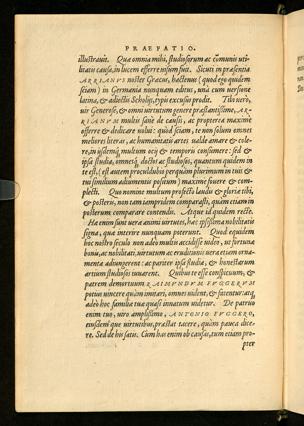 PRAEFATIO.
illustrauit. Quæ omnia mihi, studiosorum ac cōmunis uti-
litatis causa, in lucem efferre uisum fuit. Sicuti in præsentia
ARRIANVS noster Græcus, hactenus (quod ego quidem
sciam) in Germania nunquam editus, unà cum uersione
latina, & adiectis Scholijs, typis excusus prodit. Tibi uerò,
uir Generose, & omni uirtutum genere præstantissime, AR-
RIANVM multis sanè de causis, ac propterea maxime
offerre & dedicare uolui: quòd sciam, te non solum omnes
meliores literas, ac humanitatis artes ualde amare & cole-
re, in ijsdemq́; multum ocij & temporis consumere: sed &
ipsa studia, omnesq́; doctos ac studiosos, quantum quidem in
te est, (est autem proculdubio perquàm plurimum in tuis &
tui similium adiumentis positum) maxime fouere & com-
plecti. Quo nomine multum profectò laudis & gloriæ tibi,
& posteris, non tam iampridem comparasti, quàm etiam in
posterum comparare contendis. Atque id quidem recte.
Hæ enim sunt ueræ animi uirtutes, hæc ipsissima nobilitatis
signa, quæ interire nunquam poterunt. Quod equidem
hoc nostro seculo non adeò multis accidisse uideo, ut fortunæ
bonis, ac nobilitati, uirtutum ac eruditionis uera etiam orna-
menta adiungerent: ac pariter ipsa studia, & honestarum
artium studiosi iuuarent. Quibus te esse conspicuum, &
patrem demortuum RAIMVNDVM FVGGERVM
potius uincere quàm imitari, omnes uident, & fatentur: atq́;
adeò hoc familiæ tuæ quasi innatum uidetur. De patruo
enim tuo, uiro amplissimo, ANTONIO FVGGERO,
eiusdem quæ uirtutibus, præstat tacere, quàm pauca dice-
re. Sed de his satis. Cùm has enim ob causas, tum etiam pro-
pter